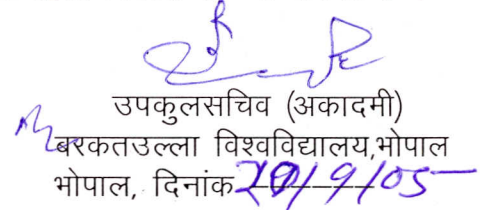 उपकुलसचिव (अकादमी)
बरकतउल्ला विश्वविद्यालय,भोपाल
भोपाल, दिनांक